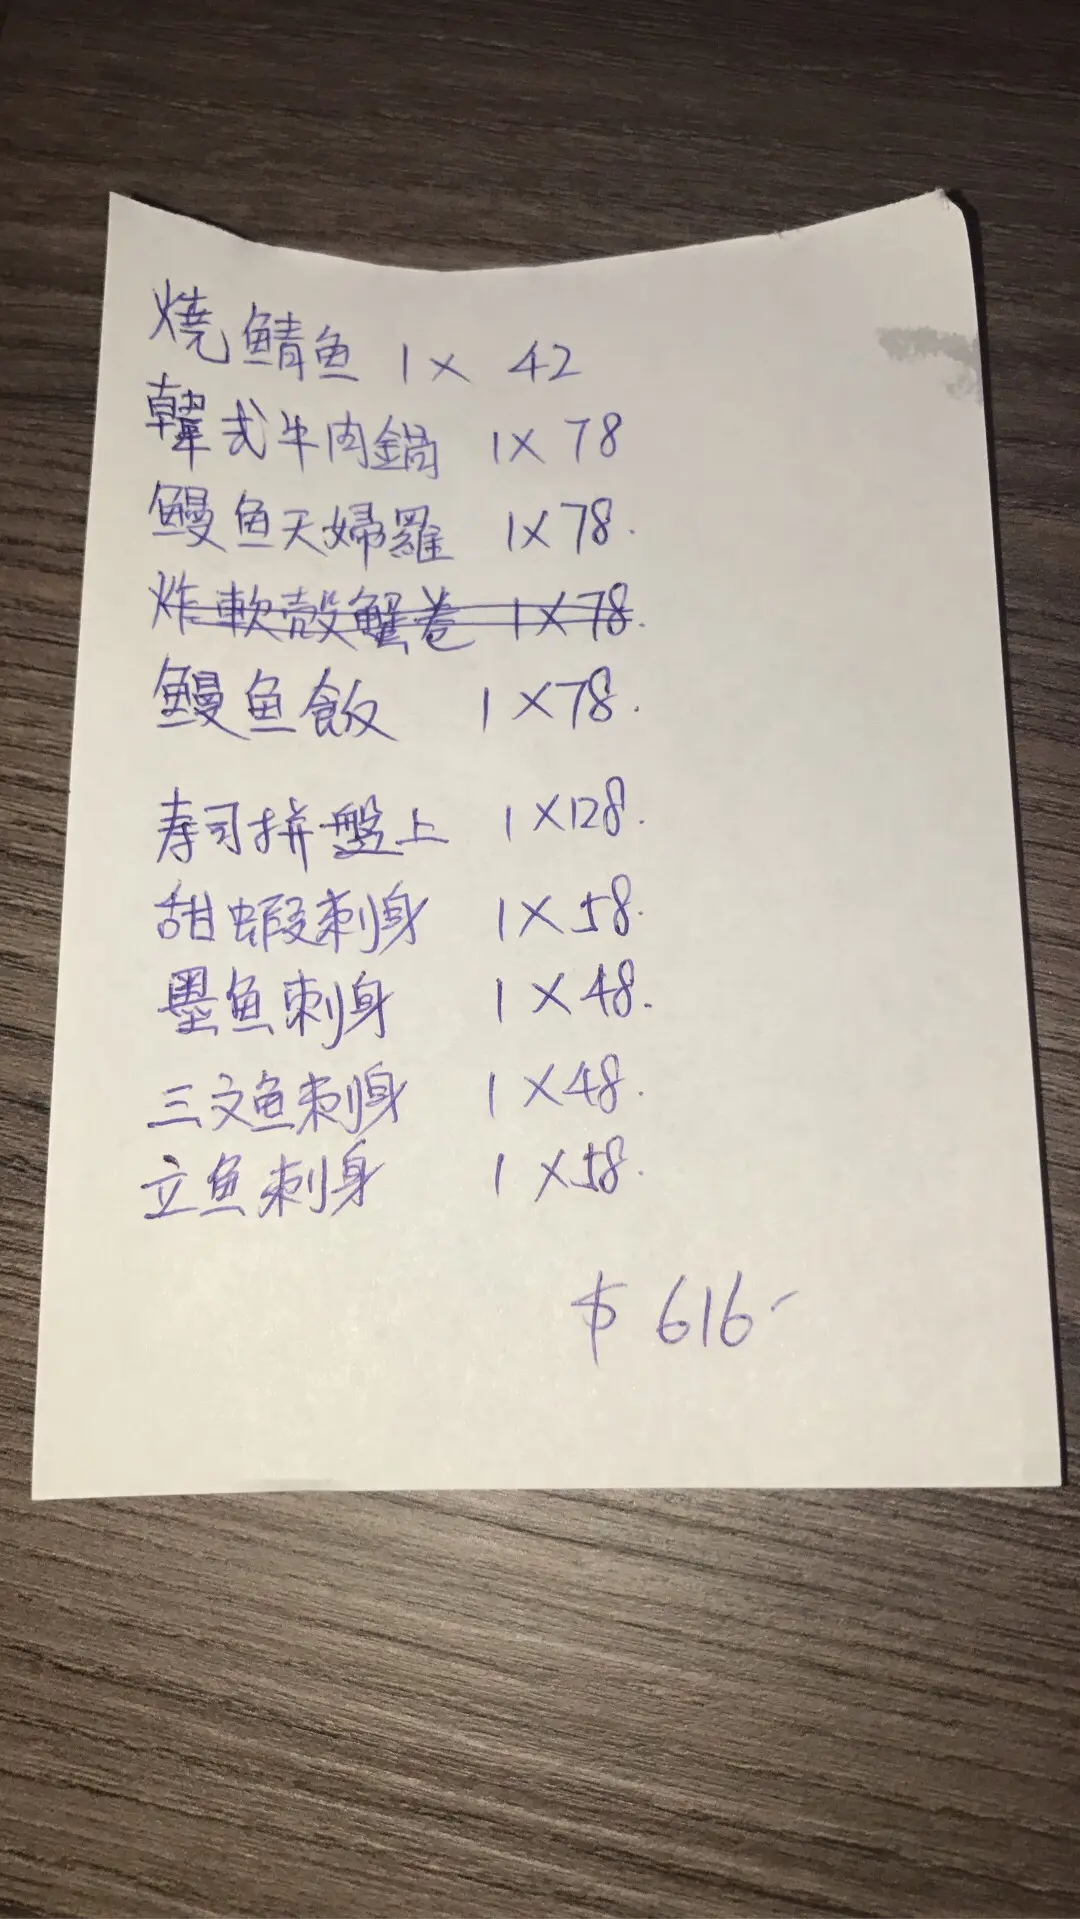 燒鯖魚 1 x 42
韓式牛肉鍋 1 x 78
鰻魚天婦羅 1 x 78.
炸軟殼蟹卷 1 x 78.
鰻魚飯 1 x 78.
寿司拼盤上 1 x 128.
甜蝦刺身 1 x 58.
墨魚刺身 1 x 48.
三文魚刺身 1 x 48.
立魚刺身 1 x 58.
$ 616-